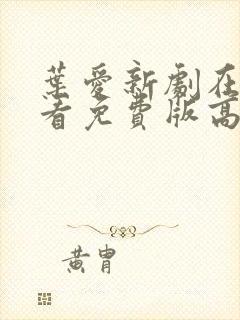 葉愛新劇在
看免費版高
黃胄